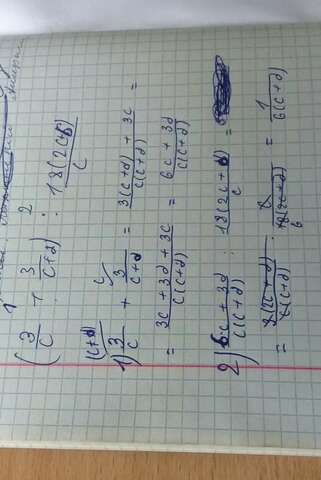 1 2
(3/c + 3/(c+d)) : 18(2c+d)/c
1) 3/c + 3/(c+d) = (3(c+d) + 3c)/(c(c+d)) =
= (3c + 3d + 3c)/(c(c+d)) = (6c + 3d)/(c(c+d))
2) (6c + 3d)/(c(c+d)) : 18(2c+d)/c =
= 3(2c+d)/(c(c+d)) · c/(18(2c+d)) = 1/(6(c+d))